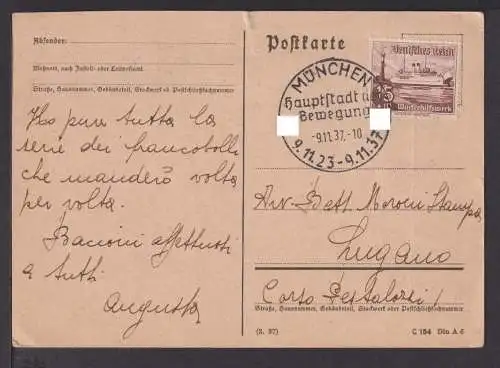 Absender:
Wohnort, auch Zustell- oder Leitpostamt
Straße, Hausnummer, Gebäudeteil, Stockwerk od. Postschließfachnummer
Postkarte
MÜNCHEN
Hauptstadt d.
Bewegung
-9.11.37.-10
9.11.23-9.11.37
Deutsches Reich
Winterhilfswerk
Ho pure tutta la
serie dei francobolli
che manderò volta
per volta.
Bacioni affettuosi
a tutti
Augusta
Avv. Batt. Stampa
Lugano
Corso Pestalozzi 1
Straße, Hausnummer, Gebäudeteil, Stockwerk oder Postschließfachnummer
C 154 Din A 6